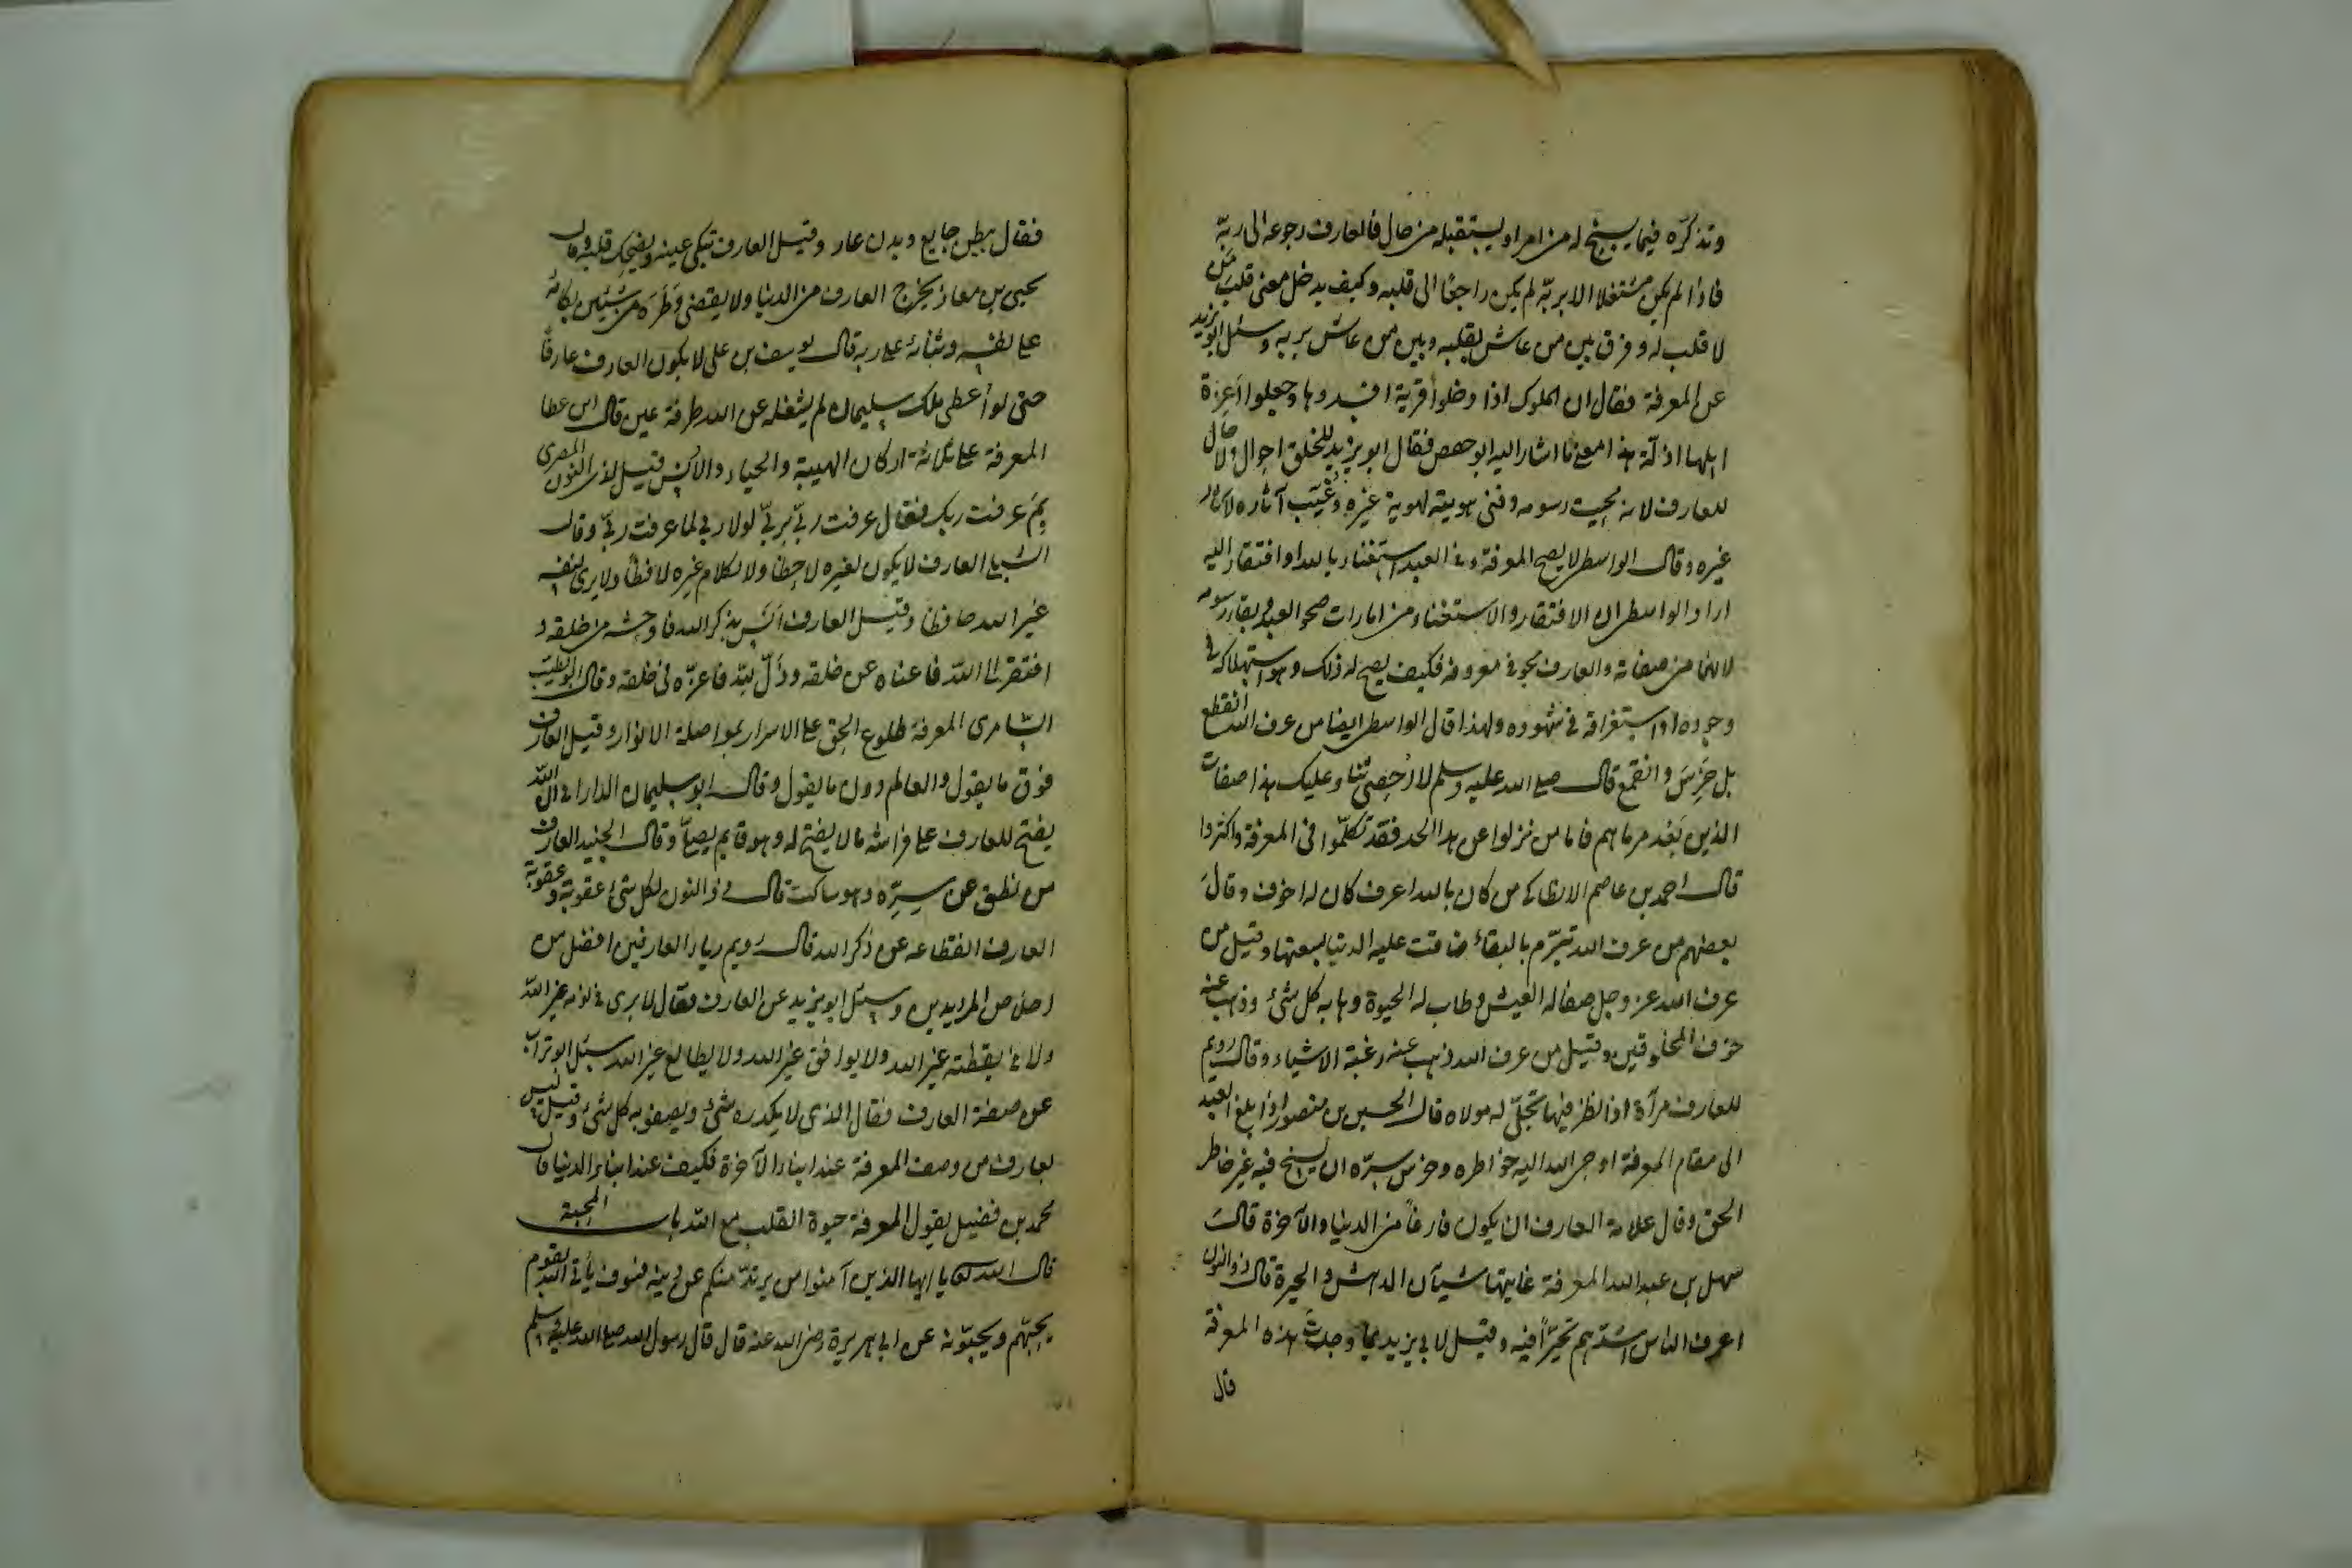 وتذكره فيما يسنح له من امر او يستقبله من حال فالعارف رجوعه الى ربه
فاذا لم يكن مشتغلا الا بربه لم يكن راجعا الى قلبه وكيف يدخل معنى قلب من
لا قلب له وفرق بين من عاش بقلبه وبين من عاش بربه وسئل ابو يزيد
عن المعرفة فقال ان الملوك اذا دخلوا قرية افسدوها وجعلوا اعزة
اهلها اذلة هذا معنى ما اشار اليه ابو حفص فقال ابو يزيد للخلق احوال ولا حال
للعارف لانه محيت رسومه وفنى هويته لهوية غيره وغيبت آثاره لاثار
غيره وقال الواسطى لا يصح المعرفة وفى العبد استغناء بالله او افتقار اليه
اراد الواسطى ان الافتقار والاستغناء من امارات صحو العبد وبقاء رسومه
لانهما من صفاته والعارف محو فى معروفه فكيف يصح له ذلك وهو لاستهلاكه فى
وجوده او استغراقه فى شهوده ولهذا قال الواسطى ايضا من عرف الله انقطع
بل خرس وانقمع قال صلى الله عليه وسلم لا احصى ثناء عليك هذا صفات
الذين بعد مرماهم فاما من نزلوا عن هذا الحد فقد تكلموا فى المعرفة واكثروا
قال احمد بن عاصم الانطاكى من كان بالله اعرف كان له اخوف وقال
بعضهم من عرف الله تبرم بالبقاء ضاقت عليه الدنيا بسعتها وقيل من
عرف الله عز وجل صفا له العيش وطاب له الحيوة وهابه كل شئ وذهب عنه
خوف المخلوقين وقيل من عرف الله ذهب عنه رغبة الاشياء وقال رويم
للعارف مرآة اذا نظر فيها تجلى له مولاه قال الحسين بن منصور اذا بلغ العبد
الى مقام المعرفة اوحى الله اليه خواطره وحرس سره ان يسنح فيه غير خاطر
الحق وقال علامة العارف ان يكون فارغا من الدنيا والآخرة قال
سهل بن عبد الله المعرفة غايتها شيآن الدهش والحيرة قال ذو النون
اعرف الناس اشدهم تحيرا فيه وقيل لابى يزيد بما وجدت هذه المعرفة
قال
فقال ببطن جايع وبدن عار وقيل العارف تبكى عينه ويضحك قلبه وقال
يحيى بن معاذ يخرج العارف من الدنيا ولا يقضى وطره من شيئين بكائه
على نفسه وثنائه على ربه قال يوسف بن على لا يكون العارف عارفا
حتى لو أعطى ملك سليمان لم يشغله عن الله طرفة عين قال ابن عطا
المعرفة على ثلاثة اركان الهيبة والحياء والانس قيل لذى النون المصرى
بم عرفت ربك فقال عرفت ربى بربى لولا ربى لما عرفت ربى وقال
الشبلى العارف لا يكون لغيره لاحظا ولا لكلام غيره لافظا ولا يرى لنفسه
غير الله حافظا وقيل العارف انس بذكر الله فاوحشه من خلقه و
افتقر الى الله فاغناه عن خلقه وذل لله فاعزه فى خلقه وقال ابو الطيب
السامرى المعرفة طلوع الحق على الاسرار بمواصلة الانوار وقيل العارف
فوق ما يقول والعالم دون ما يقول وقال ابو سليمان الدارانى ان الله
يفتح للعارف على فراشه ما لا يفتح له وهو قايم يصلى وقال الجنيد العارف
من نطق عن سره وهو ساكت قال ذو النون لكل شئ عقوبة وعقوبة
العارف انقطاعه عن ذكر الله قال رويم رياء العارفين افضل من
اخلاص المريدين وسئل ابو يزيد عن العارف فقال لا يرى فى نومه غير الله
ولا فى يقظته غير الله ولا يوافق غير الله ولا يطالع غير الله سئل ابو تراب
عن صفة العارف فقال الذى لا يكدره شئ ويصفو به كل شئ وقيل ليس
بعارف من وصف المعرفة عند ابناء الآخرة فكيف عند ابناء الدنيا قال
محمد بن فضيل يقول المعرفة حيوة القلب مع الله باب المحبة
قال الله تعالى يا ايها الذين آمنوا من يرتد منكم عن دينه فسوف يأتى الله بقوم
يحبهم ويحبونه عن ابى هريرة رضى الله عنه قال قال رسول الله صلى الله عليه وسلم